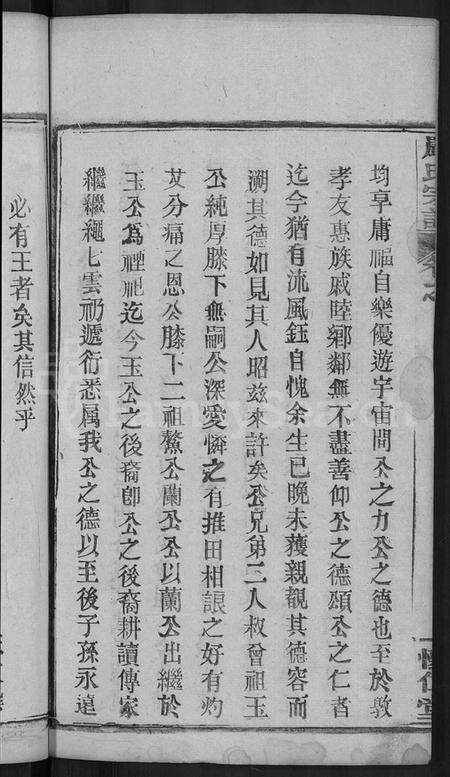 周氏宗譜
均享庸福自樂優遊宇宙間公之力公之德也至於敦
孝友惠族戚睦鄉鄰無不盡善仰公之德頌公之仁者
迄今猶有流風鈺自愧余生已晚未獲親覩其德容而
溯其德如見其人昭兹來許矣公兄弟二人叔曾祖玉
公純厚膝下無嗣公深愛憐之有推田相讓之好有灼
艾分痛之恩公膝下二祖鰲公蘭公公以蘭公出繼於
玉公爲禋祀迄今玉公之後裔卽公之後裔耕讀傳家
繼繼繩七雲礽遞衍悉属我公之德以至後子孫永遠
必有王者矣其信然乎
FamilySearch